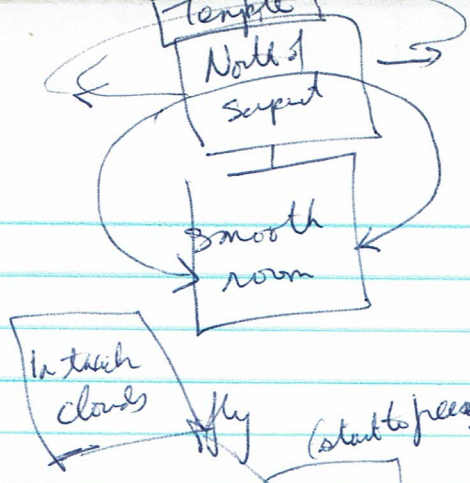 Temple
North of
Serpent
Smooth
room
In thick
clouds
fly
(start to freeze